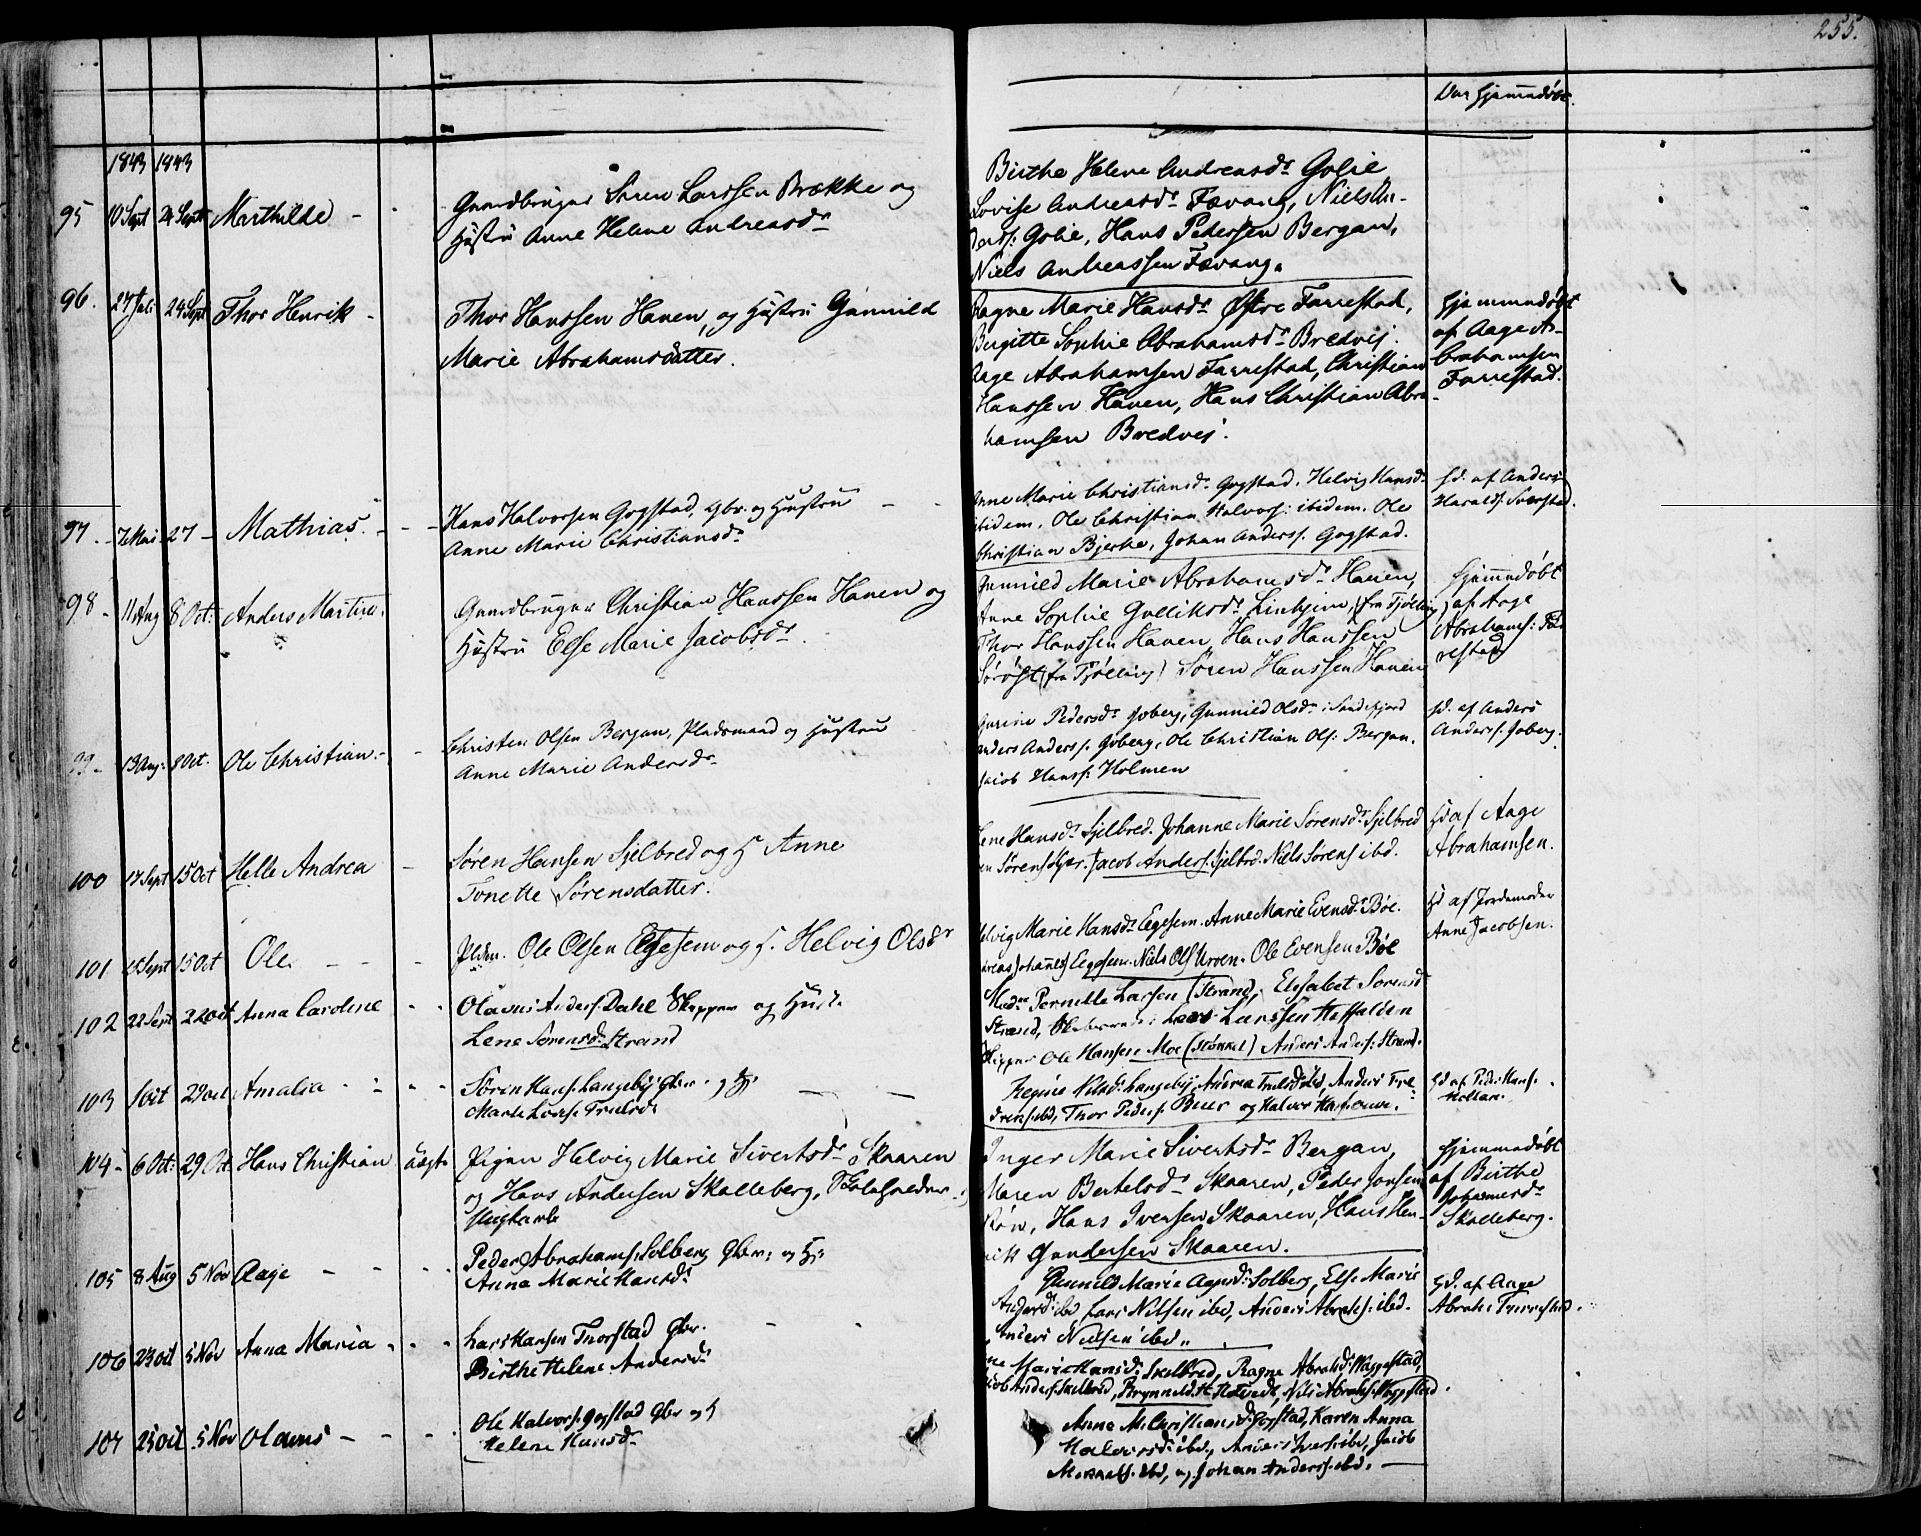 255.
Var hjemmedøbt.
1843 1843
95 10 Sept 24 Sept Marthilde - -
Gaardbruger Søren Larssen Brække og
Hustru Anne Helene Andreasdr
Birthe Helene Andreasdr Golie
Lovise Andreasdr Fævang, Niels An-
derss: Golie, Hans Pederssen Bergan,
Niels Andreassen Fævang.
96. 27 Juli 24 Sept Thor Henrik -
Thor Hanssen Haven, og Hustru Gunnild
Marie Abrahamsdatter.
Ragne Marie Hansdr Østre Farrestad,
Birgitte Sophie Abrahamsdr Bredvej.
Aage Abrahamsen Farrestad, Christian
Hanssen Haven, Hans Christian Abra-
hamsen Bredvej.
Hjemmedøbt
af Aage A-
brahamsen
Farrestad.
97. 7 Mai 27 - Mathias. - - -
Hans Halvorsen Gogstad, Gbr. og Hustru - -
Anne Marie Christiansdr
Anne Marie Christiansdr Gogstad. Helvig Hansdr
ibidem. Ole Christian Halvors: ibidem. Ole
Christian Bjerke, Johan Anderss. Gogstad.
Hd. af Anders
Haralds. Sværstad.
98. 11 Aug 8 Oct: Anders Martin.
Gaardbruger Christian Hanssen Haven og
Hustru Else Marie Jacobsdr.
Gunnild Marie Abrahamsdr Haven,
Anne Sophie Gulliksdr (fra Tjølling)
Thor Hanssen Haven, Hans Hanssen
(fra Tjølling) Søren Hanssen Haven
Hjemmedøbt
af Aage
Abrahams: Fa-
restad
99. 13 Aug: 8 Oct. Ole Christian. - -
Christen Olsen Bergan, Pladsmand og Hustru
Anne Marie Andersdr
Pedersdr Joberg, Gunnild Olsdr i Sandefjord
Anders Anderss. Joberg, Ole Christian Ols: Bergan.
Jacob Hanss. Holmen
Hd. af Anders
Anderss. Joberg.
100 17 Sept 15 Oct Helle Andrea -
Søren Hansen Sjelbred og H Anne
Tonette Sørensdatter.
Lene Hansdr Sjelbred. Johanne Marie Sørensdr Sjelbred
Jacob Anders. Sjelbrd. Niels Sørens ibd.
Hd af Aage
Abrahamsen.
101 Sept 15 Oct Ole. - - -
Ole Olsen Eggesem og H. Helvig Olsdr
Helvig Marie Hansdr Eggesem. Anne Marie Evensdr Bøe.
Johannes Eggesem. Niels Ols Ole Evensen Bøe
Hd af Jordemoder
Anne Jacobsen.
102 22 Sept 22 oct Anna Caroline - -
Olaus Anders. Dahl Skipper og Hust.
Lene Sørensdr Strand
Pernille Larsen (Strand), Elisabet Sørensd
Strand, Lars Larssen
Skipper Ole Hansen Moe (Stokkel) Anders Anders: Strand.
103 1 Oct 29 oct Amalia - - - -
Søren Hans. Langeby Gbr. og H
Truls
Nilsdr Langeby, Andrea Trulsd ibd, Anders
ibd, Thor Peders. Buer og Halvor
Hd af Peder Hans.
Holtan.
104 - 6 Oct: 29 Oct. Hans Christian uægt.
Pigen Helvig Marie Sivertsdr Skaaren
og Hans Andersen Skalleberg,
Ungkarle
Inger Marie Sivertsdr Bergan,
Maren Bertelsdr Skaaren, Peder Jonsen
Røn, Hans Iversen Skaaren, Hans Hen-
rik Gundersen Skaaren.
Hjemmedøbt
af Birthe
Johannesdr
Skalleberg.
105 8 Aug 5 Nov Aage - - - -
Peder Abrahams: Solberg Gbr: og H:
Anna Marie Hansdr
Gunnild Marie Aagesd: Solberg, Else Marie
ibd Lars Nilsen ibd, Anders Abrahs. ibd.
Anders Nielsen ibd.
Hd. af Aage
Abrahs: Farrestad.
106 23 oct 5 Nov Anna Maria - - -
Lars Hansen Thorstad Gbr. - -
Birthe Helene Andersdr
Marie Hansdr Skelbred, Ragne Abrahsdr Naggestad,
Jacob Anders. Skelbred, Nils Abrahs. Naggestad.
107 23 oct 5 Nov Olaves - - -
Ole Halvors. Gogstad Gbr og H
Helene Hansdr
Anne M. Christiansd: Gogstad, Karen Anna
Halvorsd: ibd., Anders ibd, Jacob
ibd, og Johan Anderss. ibd. -